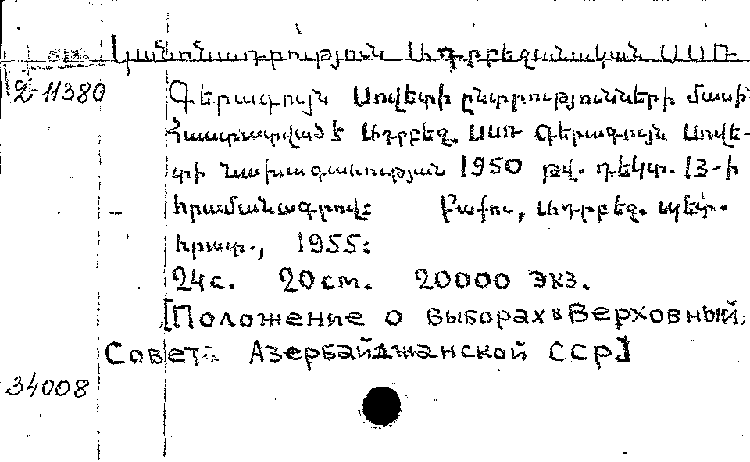 Կանոնադրություն Ադրբեջանական ՍՍՌ
2-11380 Գերագույն Սովետի ընտրությունների մասին
Հաստատված է Ադրբեջ. ՍՍՌ Գերագույն Սովե-
տի Նախագահության 1950 թվ. դեկտ. 13-ի
հրամանագրով: Բաքու, Ադրբեջ. պետ.
հրատ., 1955:
24с. 20см. 20000 экз.
[Положение о выборах в Верховный
Совет Азербайджанской ССР]
34008